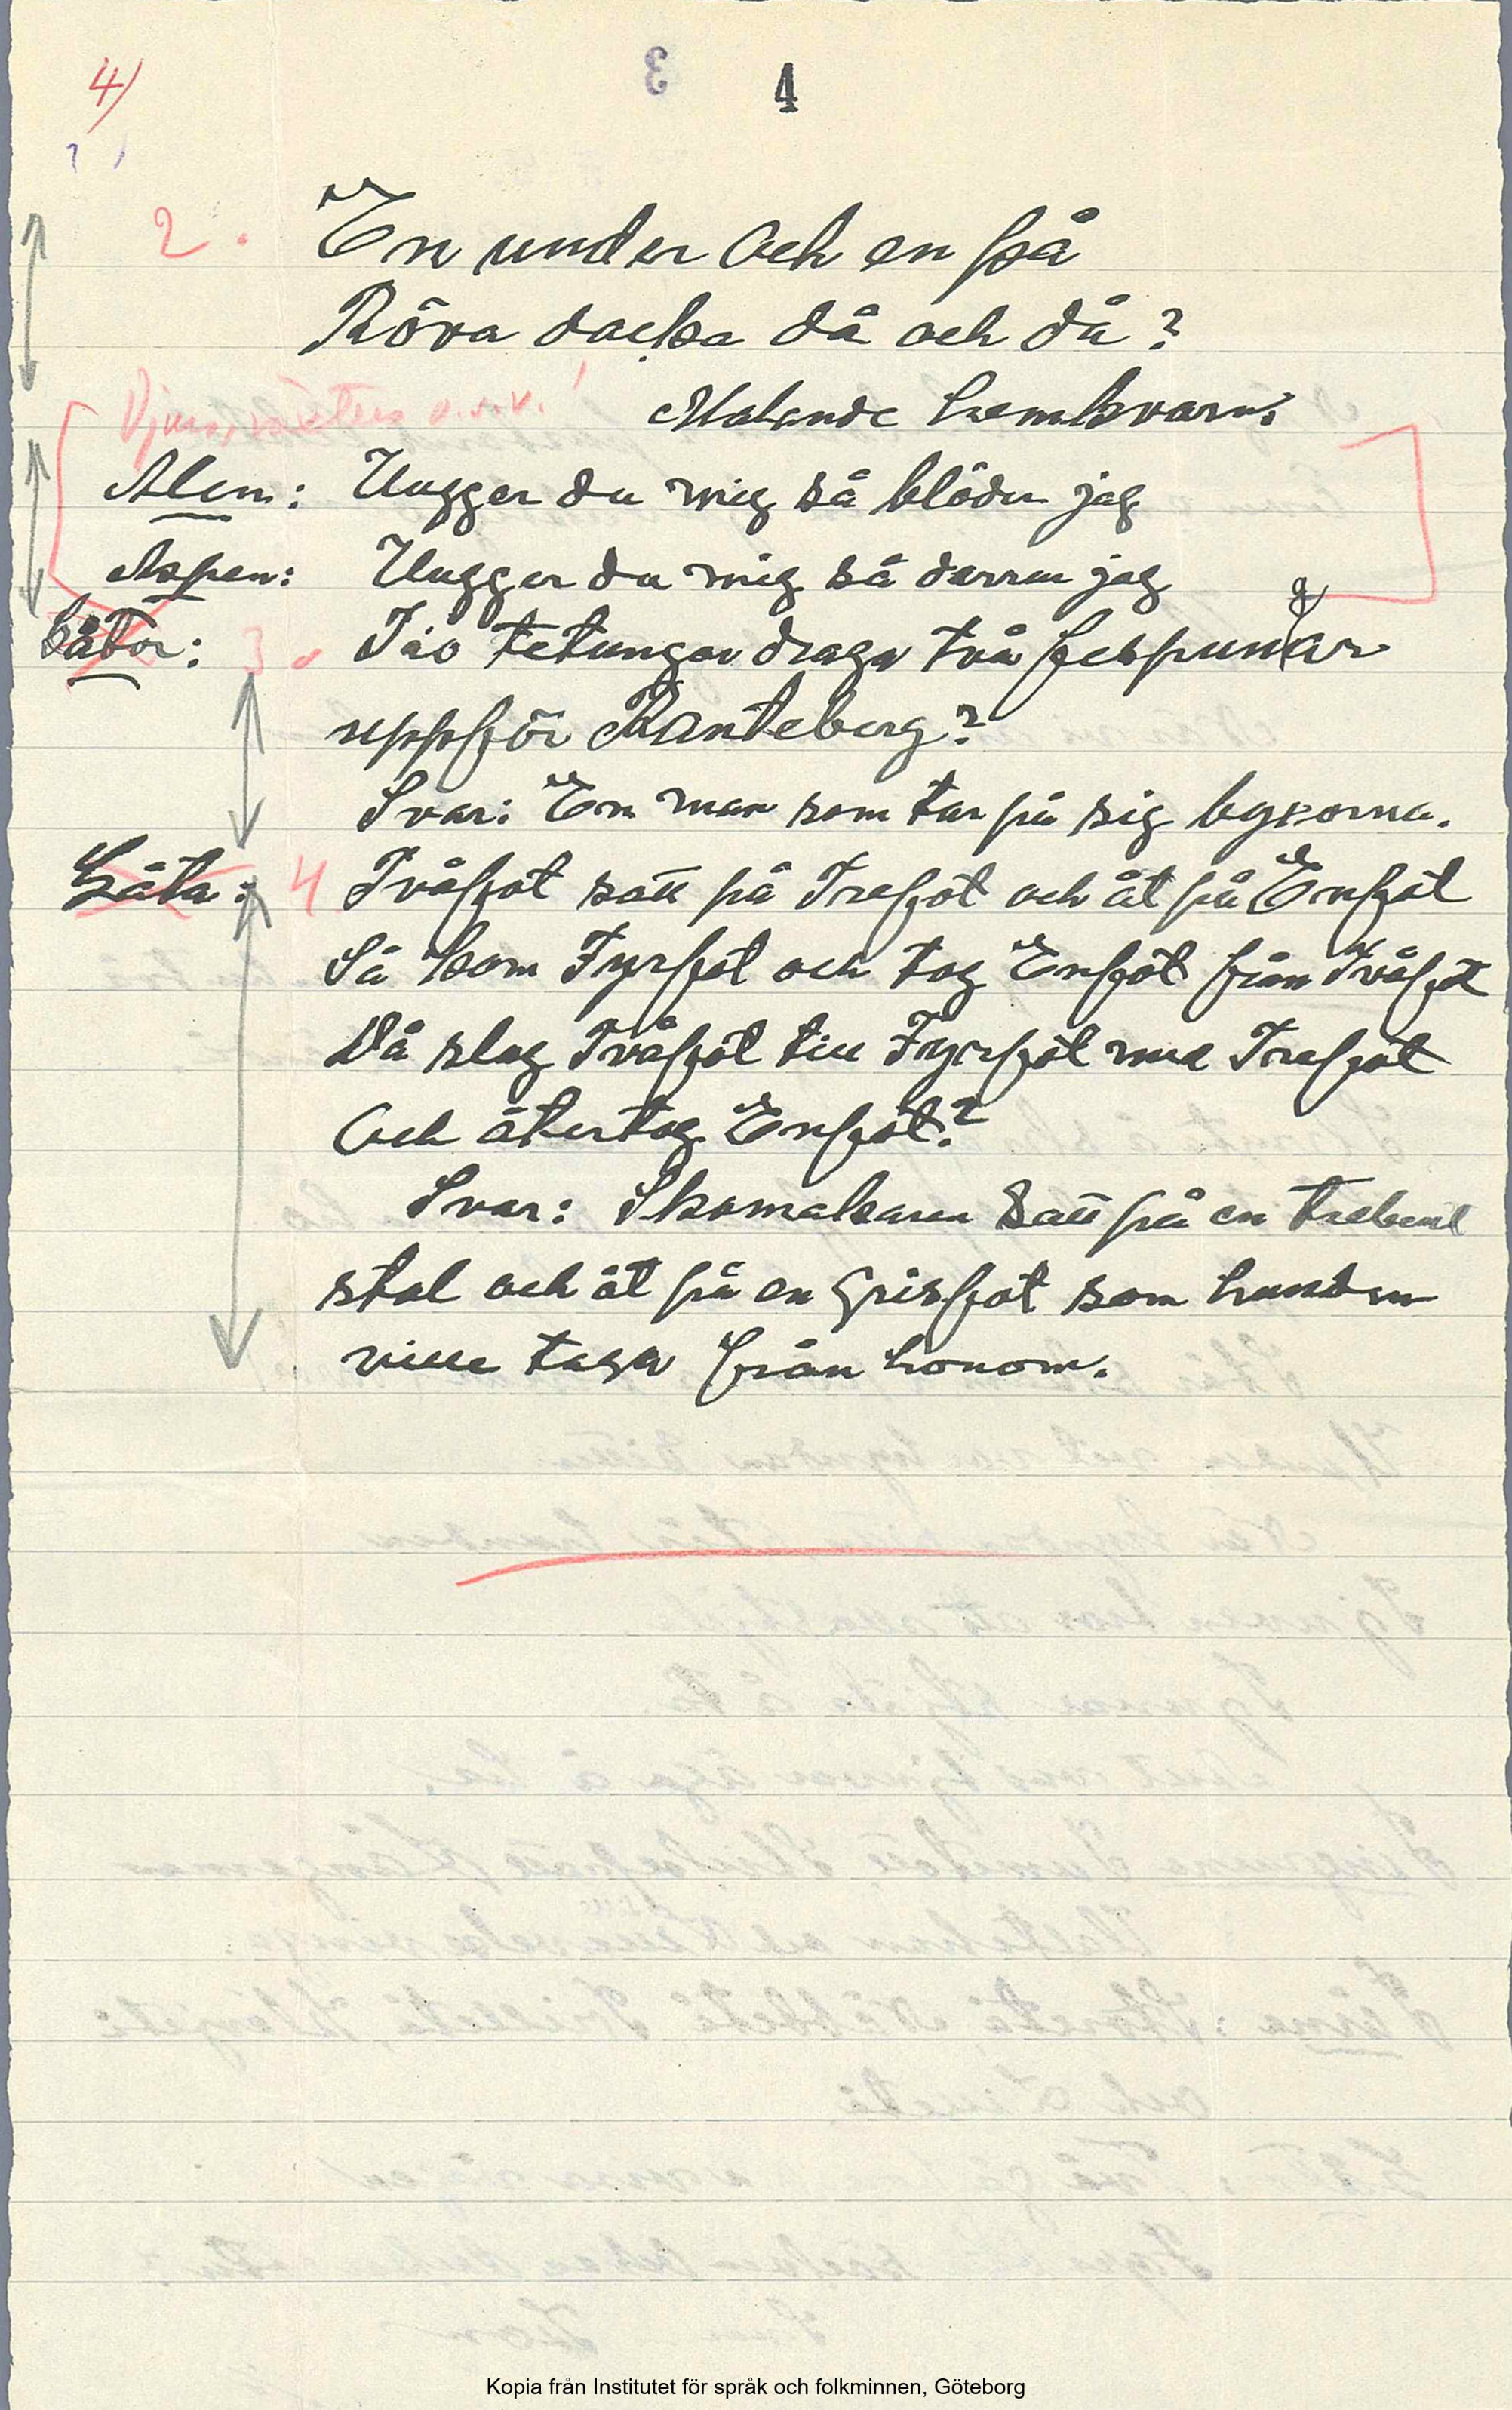 4)
3 4
2. En under och en på
Röva dacka då och då?
Djur, växter o.s.v.!
Malande hemkvarn.
Alen: Hugger du mig så blöder jag
Aspen: Hugger du mig så darrar jag
Gåtor: 3. Tio tetungar draga två fespungar
uppför Ranteberg?
Svar: En man som tar på sig byxorna.
Gåta: 4 Tvåfot satt på Trefot och åt på Enfot
Så kom Fyrfot och tog Enfot från Tvåfot
Då slog Tvåfot till Fyrfot med Trefot
Och återtog Enfot?
Svar: Skomakaren satt på en trebent
stol och åt på en Grisfot som hunden
ville taga från honom.
Kopia från Institutet för språk och folkminnen, Göteborg